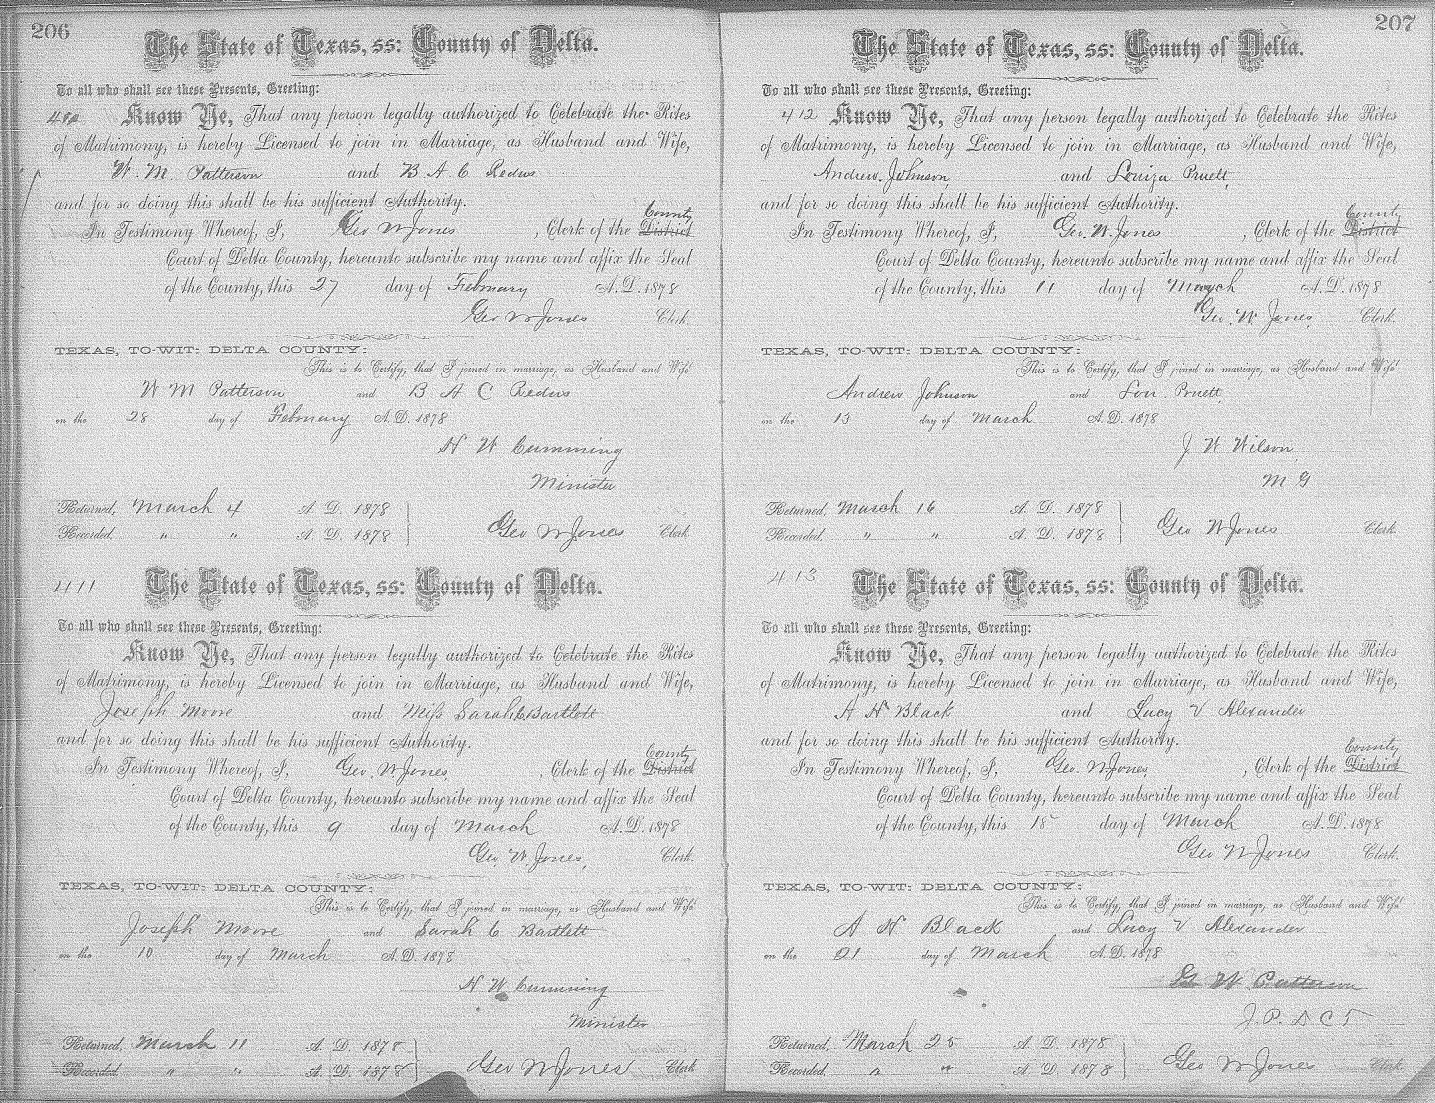 206
The State of Texas, ss: County of Delta.
To all who shall see these Presents, Greeting:
410 Know Ye, That any person legally authorized to Celebrate the Rites
of Matrimony, is hereby Licensed to join in Marriage, as Husband and Wife,
W. M. Patterson and B A C Redus
and for so doing this shall be his sufficient Authority.
In Testimony Whereof, I, Geo W Jones, Clerk of the District County
Court of Delta County, hereunto subscribe my name and affix the Seal
of the County, this 27 day of February A.D. 1878
Geo W Jones Clerk.
TEXAS, TO-WIT: DELTA COUNTY:
This is to Certify, that I joined in marriage, as Husband and Wife
W M Patterson and B A C Redus
on the 28 day of February A.D. 1878
N W Cumming
Minister
Returned, March 4 A. D. 1878
Recorded, " " A. D. 1878 Geo W Jones Clerk
411 The State of Texas, ss: County of Delta.
To all who shall see these Presents, Greeting:
Know Ye, That any person legally authorized to Celebrate the Rites
of Matrimony, is hereby Licensed to join in Marriage, as Husband and Wife,
Joseph Moore and Miss Sarah C Bartlett
and for so doing this shall be his sufficient Authority.
In Testimony Whereof, I, Geo. W Jones, Clerk of the District County
Court of Delta County, hereunto subscribe my name and affix the Seal
of the County, this 9 day of March A.D. 1878
Geo W. Jones, Clerk.
TEXAS, TO-WIT: DELTA COUNTY:
This is to Certify, that I joined in marriage, as Husband and Wife
Joseph Moore and Sarah C Bartlett
on the 10 day of March A.D. 1878
N W Cumming
Minister
Returned, March 11 A. D. 1878
Recorded, " " A. D. 1878 Geo W Jones Clerk
207
The State of Texas, ss: County of Delta.
To all who shall see these Presents, Greeting:
412 Know Ye, That any person legally authorized to Celebrate the Rites
of Matrimony, is hereby Licensed to join in Marriage, as Husband and Wife,
Andrew Johnson and Louiza Pruett
and for so doing this shall be his sufficient Authority.
In Testimony Whereof, I, Geo. W. Jones, Clerk of the District County
Court of Delta County, hereunto subscribe my name and affix the Seal
of the County, this 11 day of March A.D. 1878
Geo. W. Jones, Clerk.
TEXAS, TO-WIT: DELTA COUNTY:
This is to Certify, that I joined in marriage, as Husband and Wife
Andrew Johnson and Lou. Pruett
on the 13 day of March A.D. 1878
J W Wilson
M G
Returned, March 16 A. D. 1878
Recorded, " " A. D. 1878 Geo W Jones Clerk
413 The State of Texas, ss: County of Delta.
To all who shall see these Presents, Greeting:
Know Ye, That any person legally authorized to Celebrate the Rites
of Matrimony, is hereby Licensed to join in Marriage, as Husband and Wife,
A N Black and Lucy V Alexander
and for so doing this shall be his sufficient Authority.
In Testimony Whereof, I, Geo. W Jones, Clerk of the District County
Court of Delta County, hereunto subscribe my name and affix the Seal
of the County, this 18 day of March A.D. 1878
Geo W Jones Clerk.
TEXAS, TO-WIT: DELTA COUNTY:
This is to Certify, that I joined in marriage, as Husband and Wife
A N Black and Lucy V Alexander
on the 21 day of March A.D. 1878
Geo W Patterson
J. P. D C T
Returned, March 25 A. D. 1878
Recorded, " " A. D. 1878 Geo W Jones Clerk